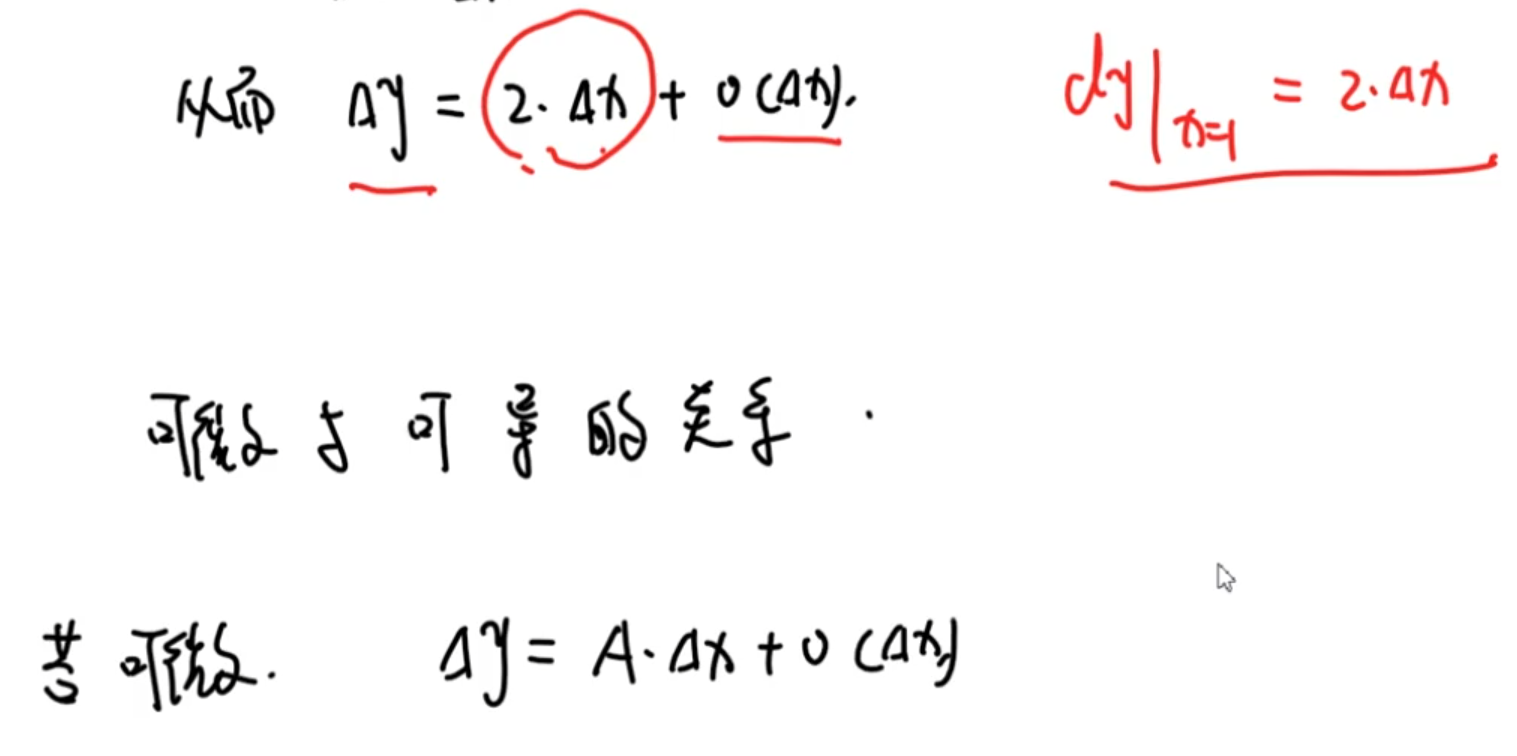 从而 Δy = 2·Δx + o(Δx). dy|x=1 = 2·Δx
可微与可导的关系.
若可微. Δy = A·Δx + o(Δx)